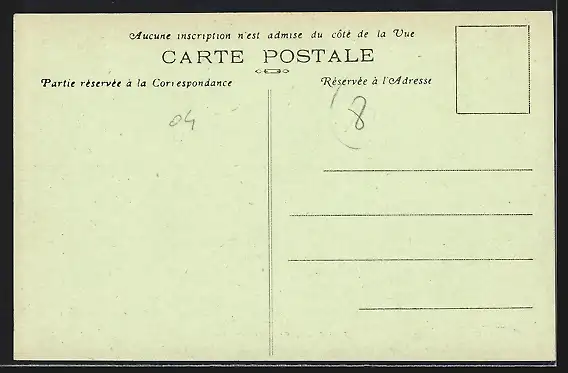 Aucune inscription n'est admise du côté de la Vue
CARTE POSTALE
Partie réservée à la Correspondance
Réservée à l'Adresse
04
8